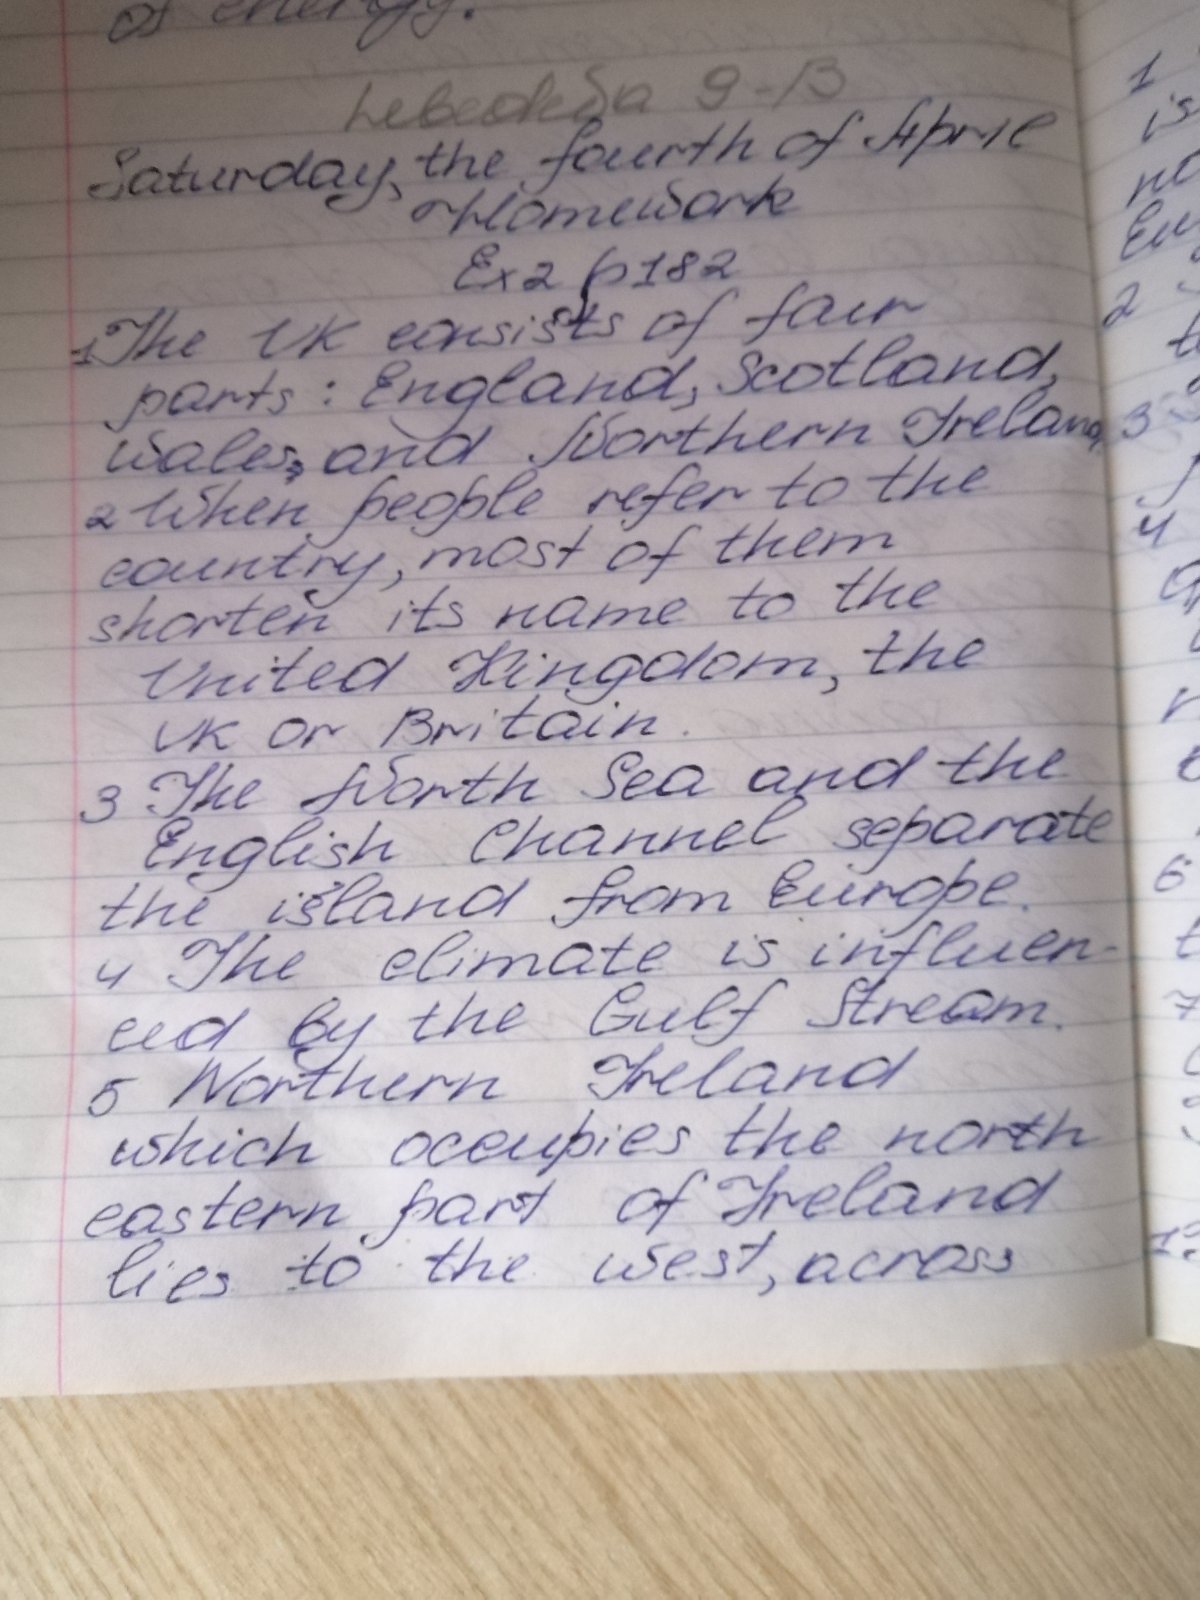 of energy.
9-B
Saturday, the fourth of April
Homework
Ex2 p182
1 The UK consists of four
parts: England, Scotland,
Wales, and Northern Ireland,
2 When people refer to the
country, most of them
shorten its name to the
United Kingdom, the
UK or Britain.
3 The North Sea and the
English Channel separate
the island from Europe.
4 The climate is influen-
ced by the Gulf Stream.
5 Northern Ireland
which occupies the north
eastern part of Ireland
lies to the west, across
1
is
2
3
4
6
7